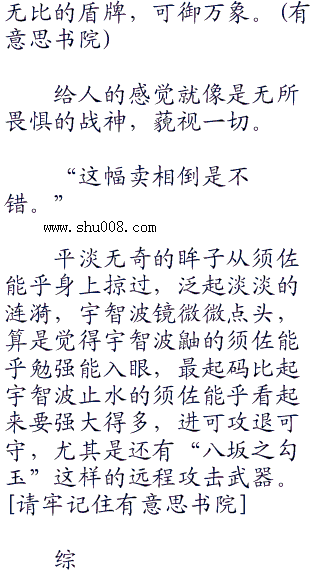 无比的盾牌，可御万象。(有
意思书院)
给人的感觉就像是无所
畏惧的战神，藐视一切。
“这幅卖相倒是不
错。”
www.shu008.com
平淡无奇的眸子从须佐
能乎身上掠过，泛起淡淡的
涟漪，宇智波镜微微点头，
算是觉得宇智波鼬的须佐能
乎勉强能入眼，最起码比起
宇智波止水的须佐能乎看起
来要强大得多，进可攻退可
守，尤其是还有“八坂之勾
玉”这样的远程攻击武器。
[请牢记住有意思书院]
综